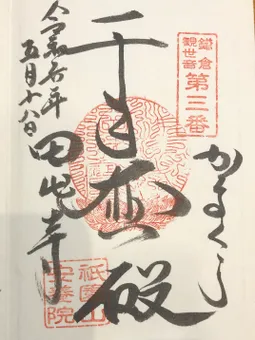 鎌倉
観世音
第三番
かまくら
千手大悲殿
令和七年
五月十八日
田代寺
祇園山
安養院